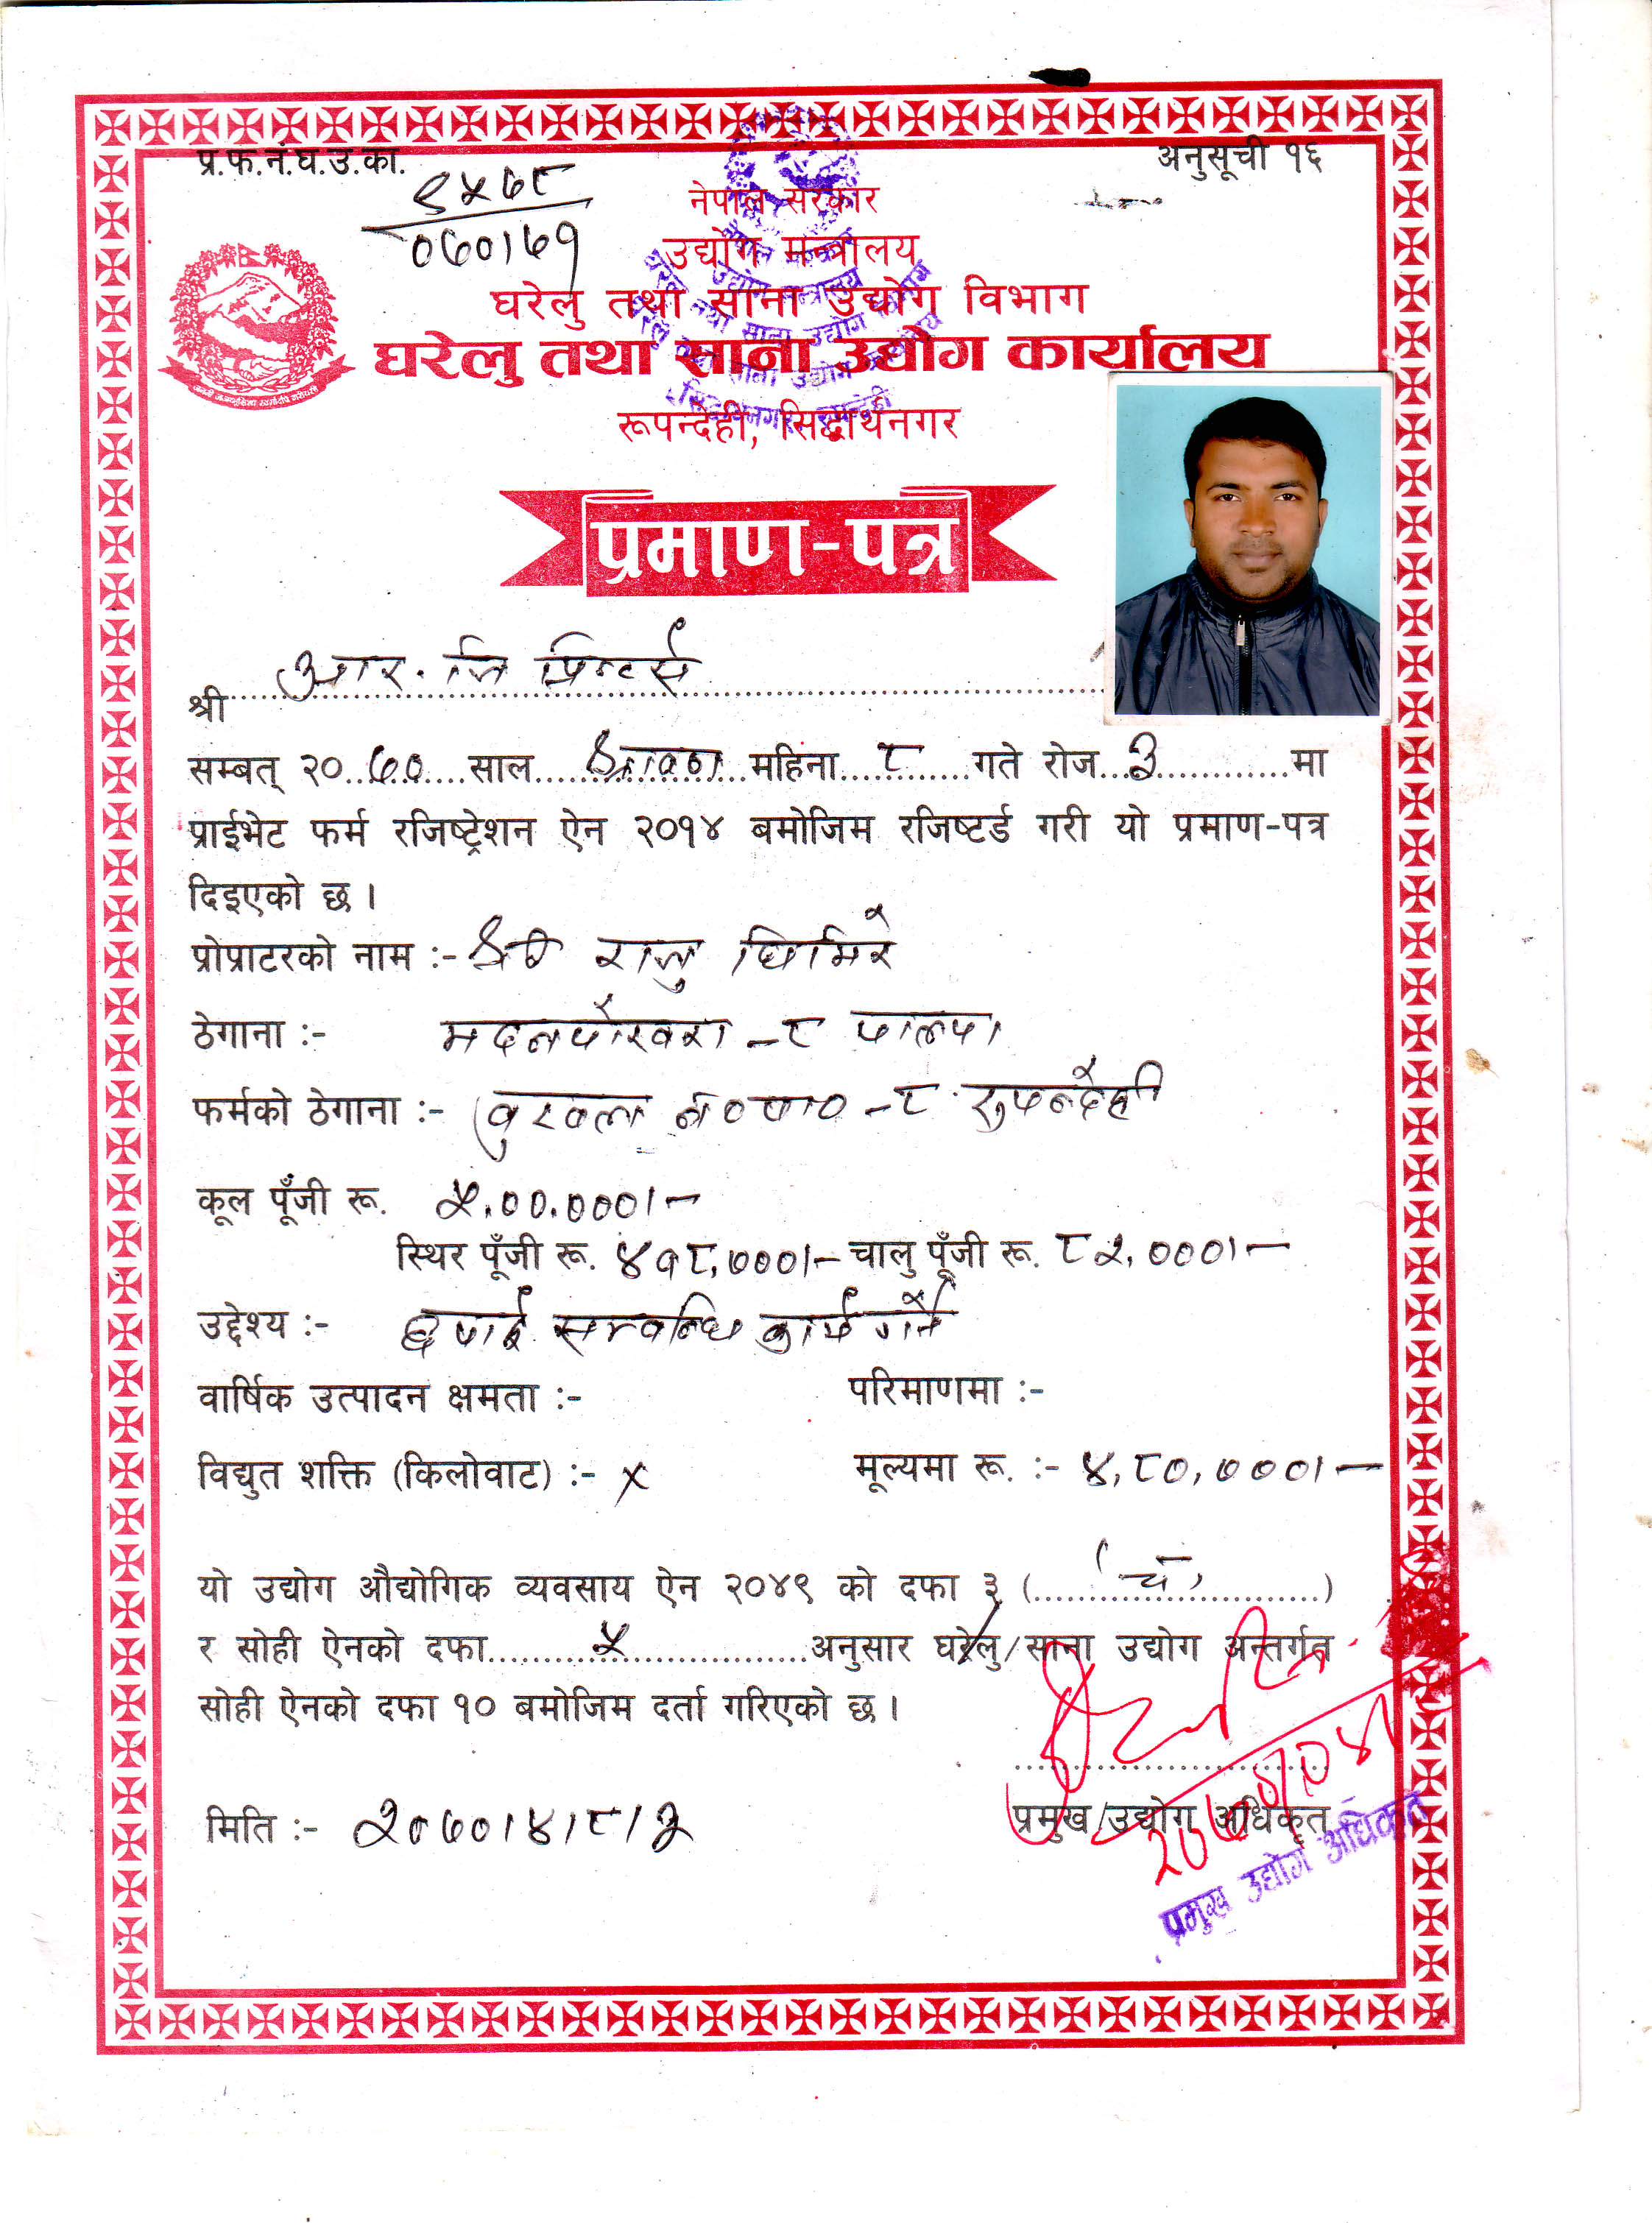 प्र.फ.नं.घ.उ.का.
९५७८
०७०।७१
अनुसूची १६
नेपाल सरकार
उद्योग मन्त्रालय
घरेलु तथा साना उद्योग विभाग
घरेलु तथा साना उद्योग कार्यालय
रूपन्देही, सिद्धार्थनगर
प्रमाण-पत्र
श्री आर. जि प्रिन्टर्स
सम्बत् २०७० साल श्रावण महिना ८ गते रोज ३ मा
प्राईभेट फर्म रजिष्ट्रेशन ऐन २०१४ बमोजिम रजिष्टर्ड गरी यो प्रमाण-पत्र
दिइएको छ ।
प्रोप्राटरको नाम :- श्री राजु घिमिरे
ठेगाना :- मदनपोखरा -८ पाल्पा
फर्मको ठेगाना :- बुटवल न०पा० -८ रुपन्देही
कूल पूँजी रू. ५,००,०००।-
स्थिर पूँजी रू. ४१८,०००।- चालु पूँजी रू. ८२,०००।-
उद्देश्य :- छपाई सम्बन्धि कार्य गर्ने
वार्षिक उत्पादन क्षमता :- परिमाणमा :-
विद्युत शक्ति (किलोवाट) :- × मूल्यमा रू. :- ४,८०,०००।-
यो उद्योग औद्योगिक व्यवसाय ऐन २०४९ को दफा ३ (च)
र सोही ऐनको दफा ५ अनुसार घरेलु/साना उद्योग अन्तर्गत
सोही ऐनको दफा १० बमोजिम दर्ता गरिएको छ ।
मिति :- २०७०।४।८।३
प्रमुख/उद्योग अधिकृत
प्रमुख उद्योग अधिकृत